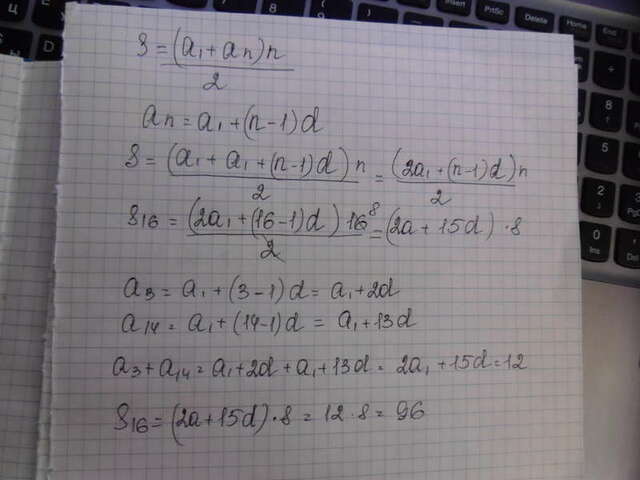 S = (a₁ + an)n / 2
an = a₁ + (n-1)d
S = (a₁ + a₁ + (n-1)d)n / 2 = (2a₁ + (n-1)d)n / 2
S₁₆ = (2a₁ + (16-1)d)16⁸ / 2 = (2a + 15d) · 8
a₃ = a₁ + (3-1)d = a₁ + 2d
a₁₄ = a₁ + (14-1)d = a₁ + 13d
a₃ + a₁₄ = a₁ + 2d + a₁ + 13d = 2a₁ + 15d = 12
S₁₆ = (2a + 15d) · 8 = 12 · 8 = 96
Insert
PrtSc
Delete
Home
End